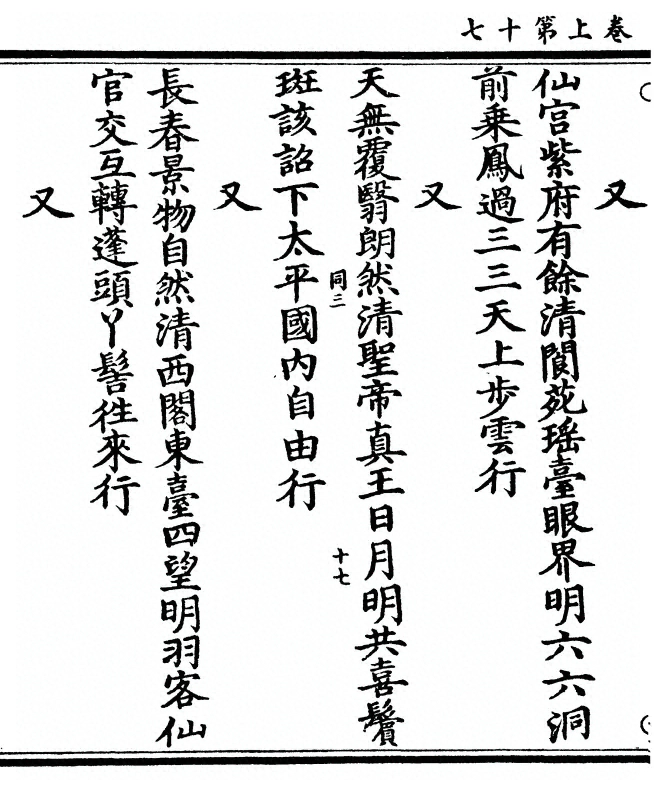 卷上第十七
又
仙宫紫府有餘清閬苑瑤臺眼界明六六洞
前乗鳳過三三天上步雲行
又
天無覆翳朗然清聖帝真王日月明共喜鬢
同三
十七
斑該詔下太平國内自由行
又
長春景物自然清西閣東臺四望明羽客仙
官交互轉蓬頭丫髻徃來行
又